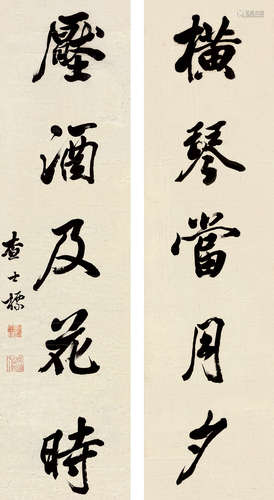 橫琴當月夕
壓酒及花時
查士標